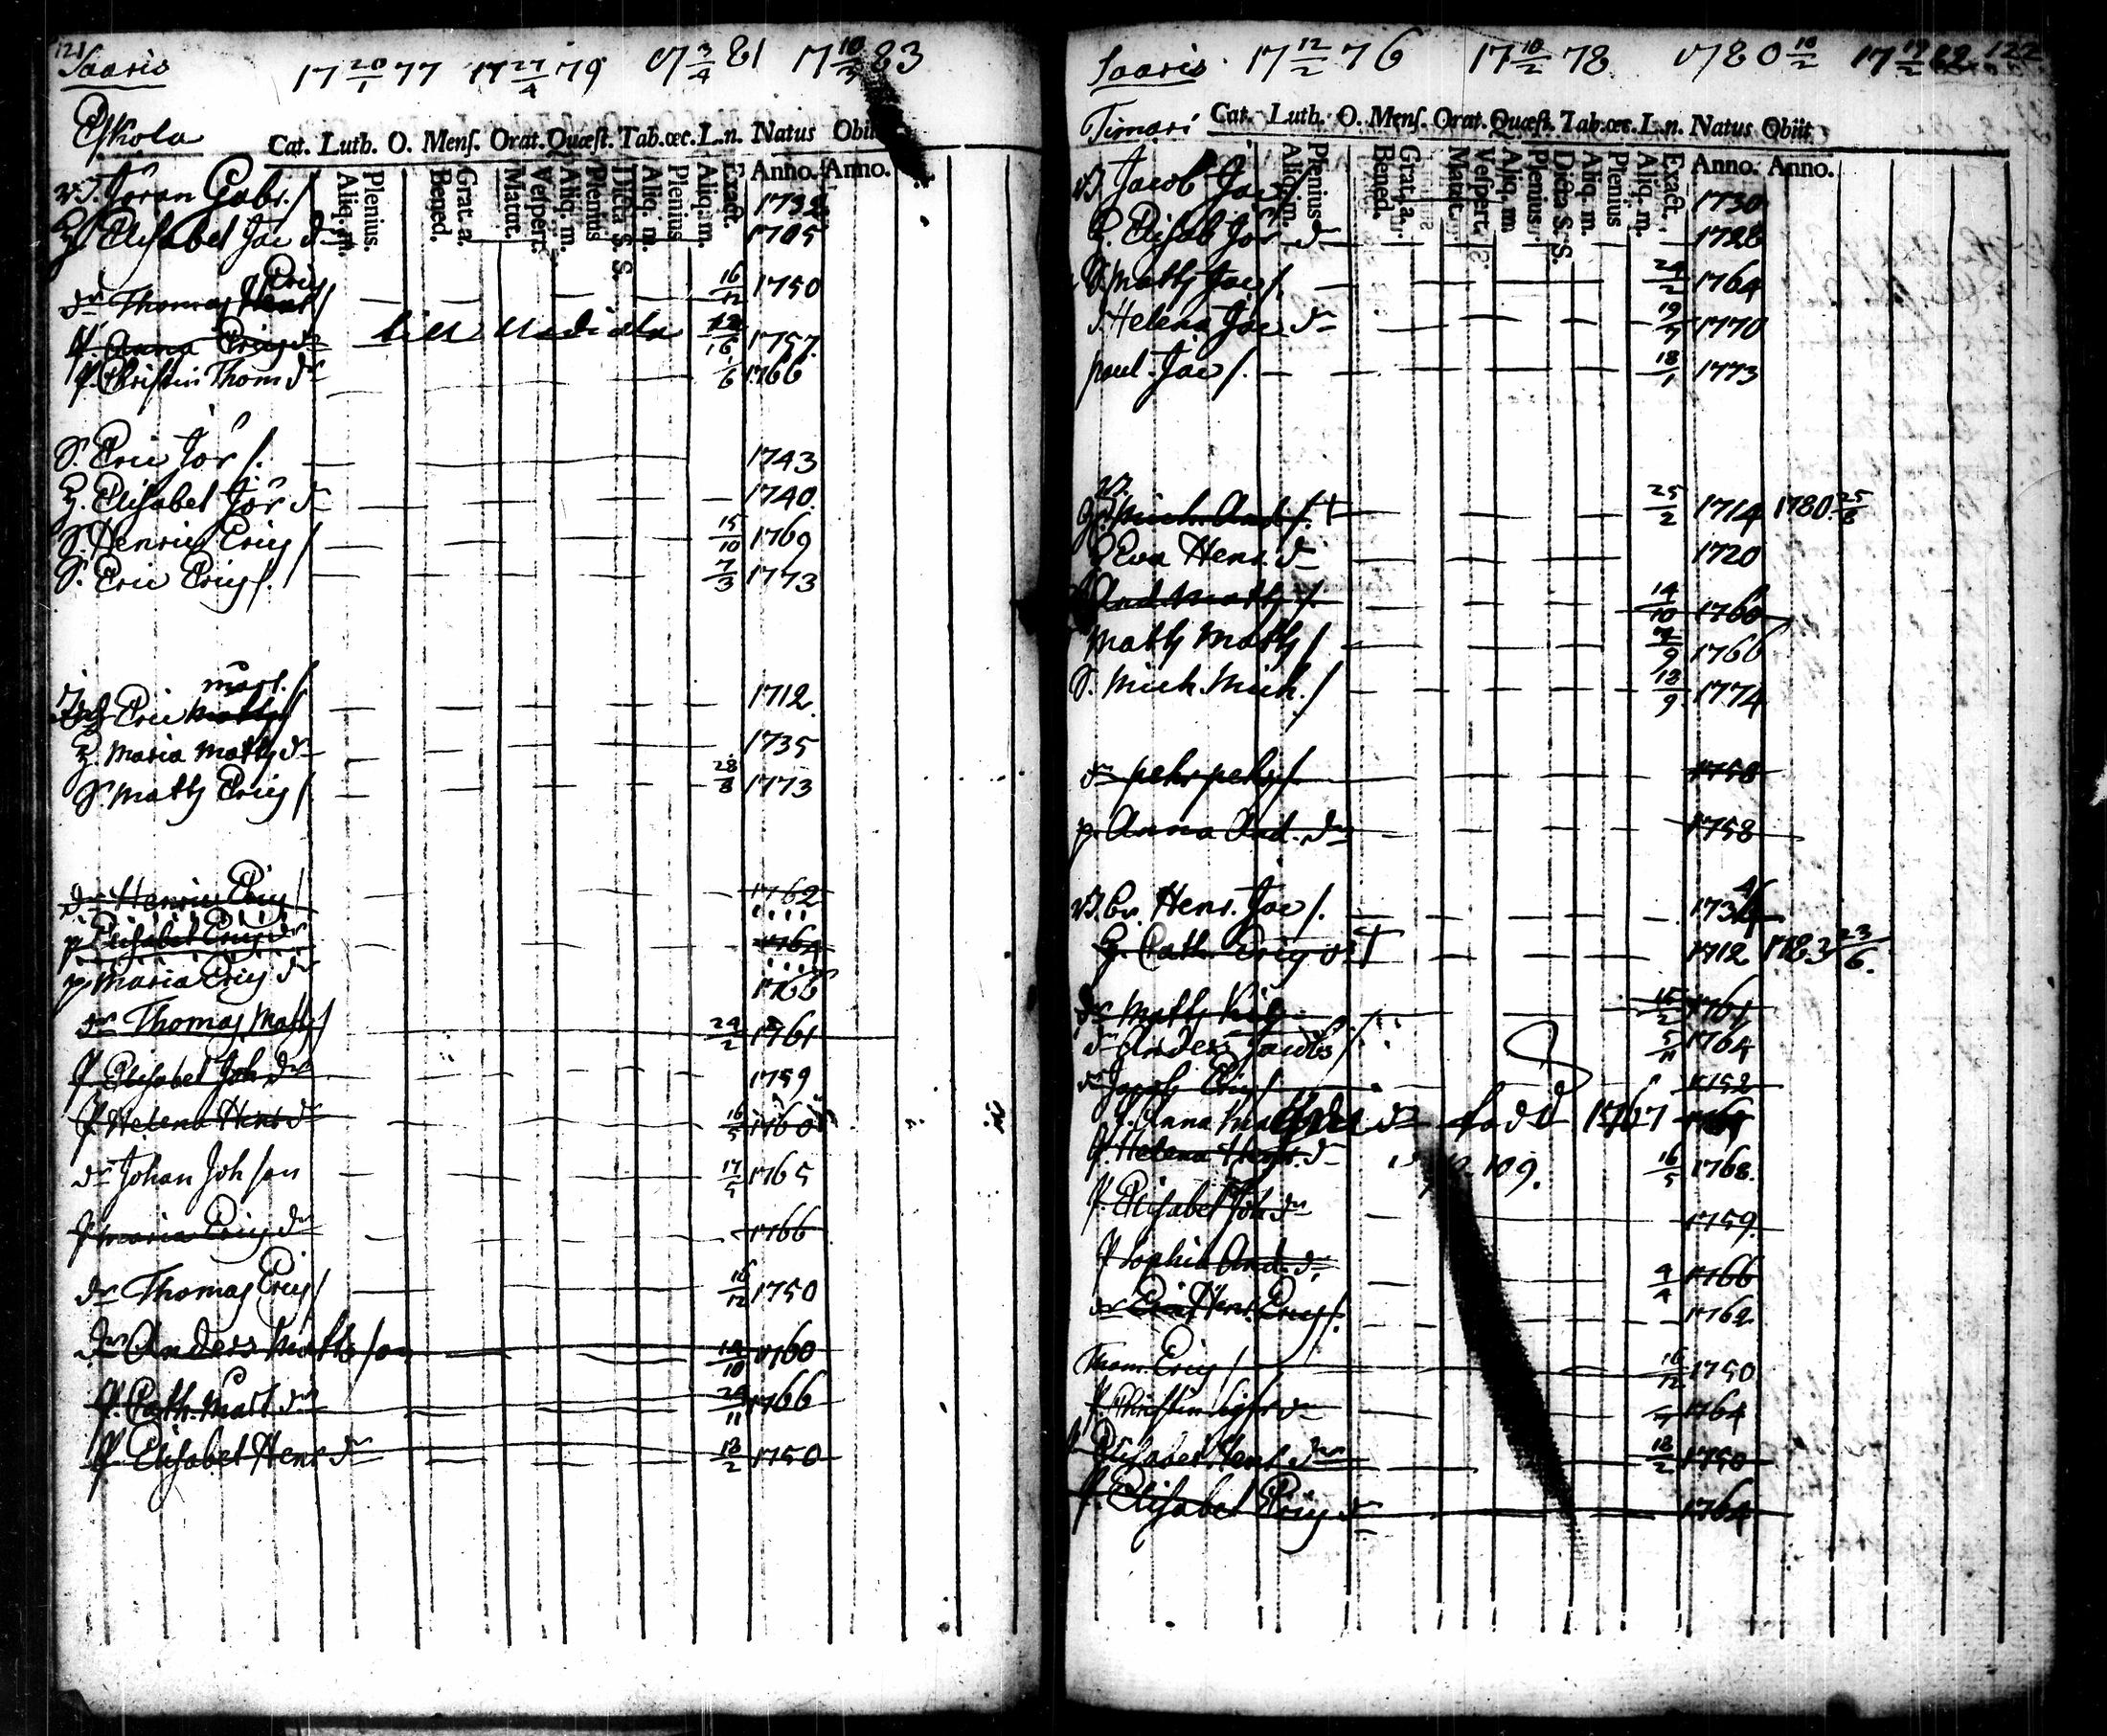 121
Saaris 17 20/1 77 17 27/4 79 17 3/4 81 17 10/3 83
Eskola
Cat. Luth. O. Mens. Orat. Quæst. Tab.œc. L.n. Natus Obiit
Aliq. m. Plenius. Bened. Grat. a. Matut. Vespert. Aliq. m. Plenius Dicta S. S. Aliq. m. Plenius Aliq. m. Exact. Anno. Anno.
Jöran Gabr. /
H. Elisabet Jac dr 1705
Eric
dr Thomas / 16/12 1750
P. Anna Ericsdr 16 1757
P. Christin Thom dr 1/6 1766
S. Eric Jör /. 1743
H. Elisabet Jör dr 1740.
S. Henric Erics / 15/10 1769
S. Eric Erics /. 7/3 1773
mårt. /
Eric Matts / 1712.
H. Maria Matts dr 1735
S. Matts Erics / 28/8 1773
dr Henric Erics / 1762
p. Elisabet Erics dr 1764
p. Maria Erics dr 1766
dr Thomas Matts / 24/2 1761
P. Elisabet Joh dr 1759
P. Helena Henr dr 16/5 1760
dr Johan Joh son 17/5 1765
P Maria Erics dr 1766
dr Thomas Erics / 16/12 1750
dr Anders Matts son 14/10 1760
P. Cath. Matt dr 24/11 1766
P. Elisabet Henr dr 18/2 1750
Saaris. 17 12/2 76 17 10/2 78 1780 10/2 17 12/2 82 122
Timari Cat. Luth. O. Mens. Orat. Quæst. Tab.œc. L.n. Natus Obiit
Aliq. m. Plenius Bened. Grat. a. Matut. Vespert. Aliq. m Plenius. Dicta S. S. Aliq. m. Plenius Aliq. m. Exact. Anno. Anno.
Jacob Jac / 1730
H. Elisab Jör dr 1728
S. Matts Jac /. 24/2 1764
d. Helena Jac dr 19/7 1770
paul. Jac /. 18/1 1773
Mich. And /. + 25/2 1714 1780. 25/8
H Eva Henr. dr 1720
And. Matts /. 14/10 1760
Matts Matts / 9 1766
S. Mich. Mich. / 18/9 1774
dr pehr pehrs /. 1758
p. Anna And. dr 1758
Br. Henr. Jac /. 1734
H. Cath. Eric dr + 1712 1783 23/6.
dr Matts 15/2 1761
dr Anders Jacobs / 5/11 1764
dr Jacob Erics / 1752
P. Anna dr född 1767
P. Helena Henr. dr p. 109. 16/5 1768.
P. Elisabet Joh dr 1759.
P Sophia And. dr 4/4 1766
dr Henr. Erics /. 1762
Thom Erics / 16/12 1750
P. Christin dr 1764
P Elisabet Henr dr 18/2 1750
P. Elisabet Erics dr 1764